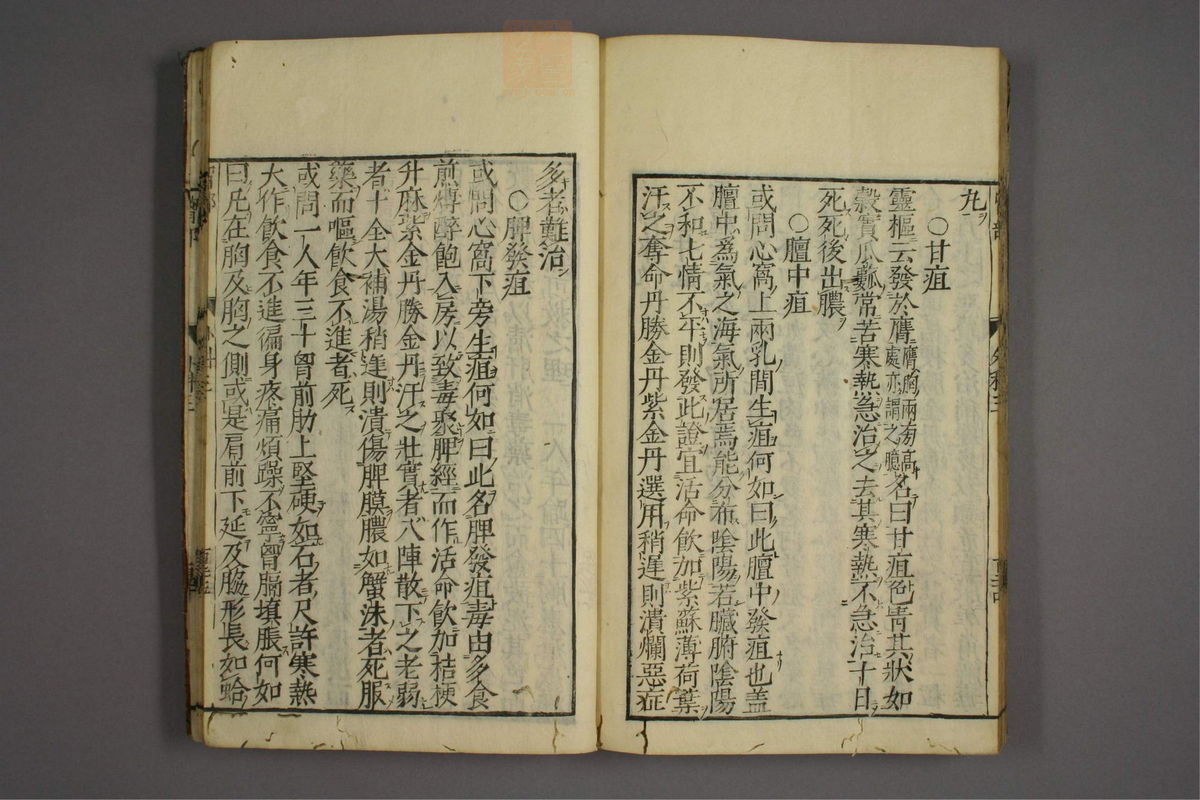 九
○甘疽
靈樞云發於膺膺胸兩旁高處亦謂之臆名曰甘疽色青其狀如
穀實瓜蔞常苦寒熱急治之去其寒熱不急治十日
死死後出膿
○膻中疽
或問心窩上兩乳間生疽何如曰此膻中發疽也蓋
膻中爲氣之海氣所居焉能分布陰陽若臟腑陰陽
不和七情不平則發此證宜活命飲加紫蘇薄荷葉
汗之奪命丹勝金丹紫金丹選用稍遲則潰爛惡症
多者難治
○脾發疽
或問心窩下旁生疽何如曰此名脾發疽毒由多食
煎煿醉飽入房以致毒聚脾經而作活命飲加桔梗
升麻紫金丹勝金丹汗之壯實者八陣散下之老弱
者十全大補湯稍遲則潰傷脾膜膿如蟹沫者死服
藥而嘔飲食不進者死
或問一人年三十曾前肋上堅硬如石者尺許寒熱
大作飲食不進徧身疼痛煩躁不寧曾膈填脹何如
曰凡在胸及胸之側或是肩前下延及脇形長如蛤